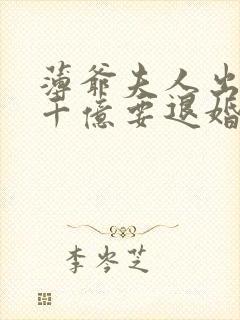 薄爷夫人出
十億要退婚
李岑芝